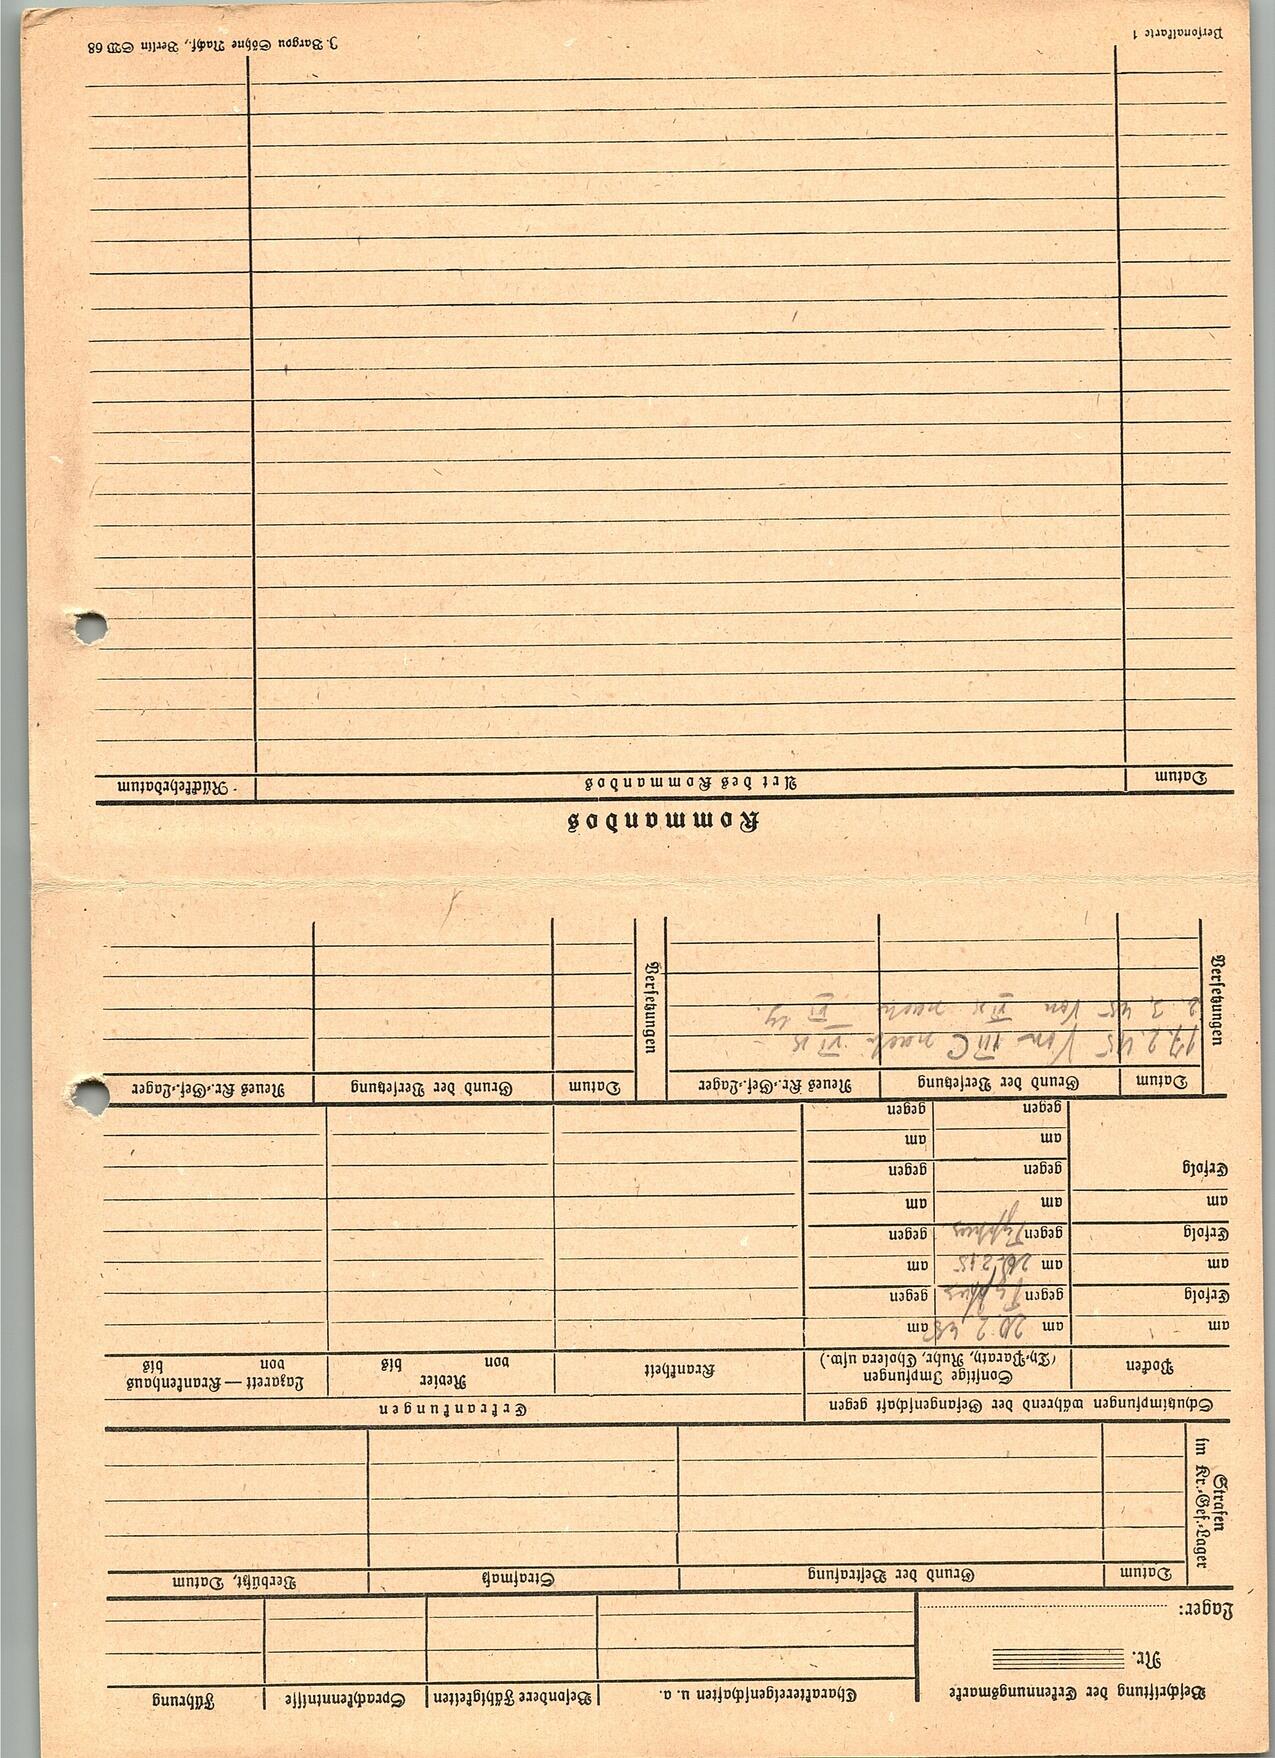 Beschriftung der Erkennungsmarke
Nr.
Lager:
Charaktereigenschaften u. a.
Besondere Fähigkeiten
Sprachkenntnisse
Führung
Strafen im Kr.-Gef.-Lager
Datum
Grund der Bestrafung
Strafmaß
Verbüßt, Datum
Schutzimpfungen während der Gefangenschaft gegen
Erkrankungen
Pocken
Sonstige Impfungen
(Ty.-Paraty., Ruhr, Cholera usw.)
Krankheit
Revier
von bis
Lazarett — Krankenhaus
von bis
am
am 20.2.45
am
Erfolg
gegen Typhus
gegen
am
am 2.45
am
Erfolg
gegen Typhus
gegen
am
am
am
Erfolg
gegen
gegen
am
am
gegen
gegen
Versetzungen
Datum
Grund der Versetzung
Neues Kr.-Gef.-Lager
Versetzungen
Datum
Grund der Versetzung
Neues Kr.-Gef.-Lager
17.2.45 Von III C nach
2.3.45 Von nach
Kommandos
Datum
Art des Kommandos
Rückkehrdatum
Personalkarte 1
J. Bargou Söhne Nachf., Berlin SW 68